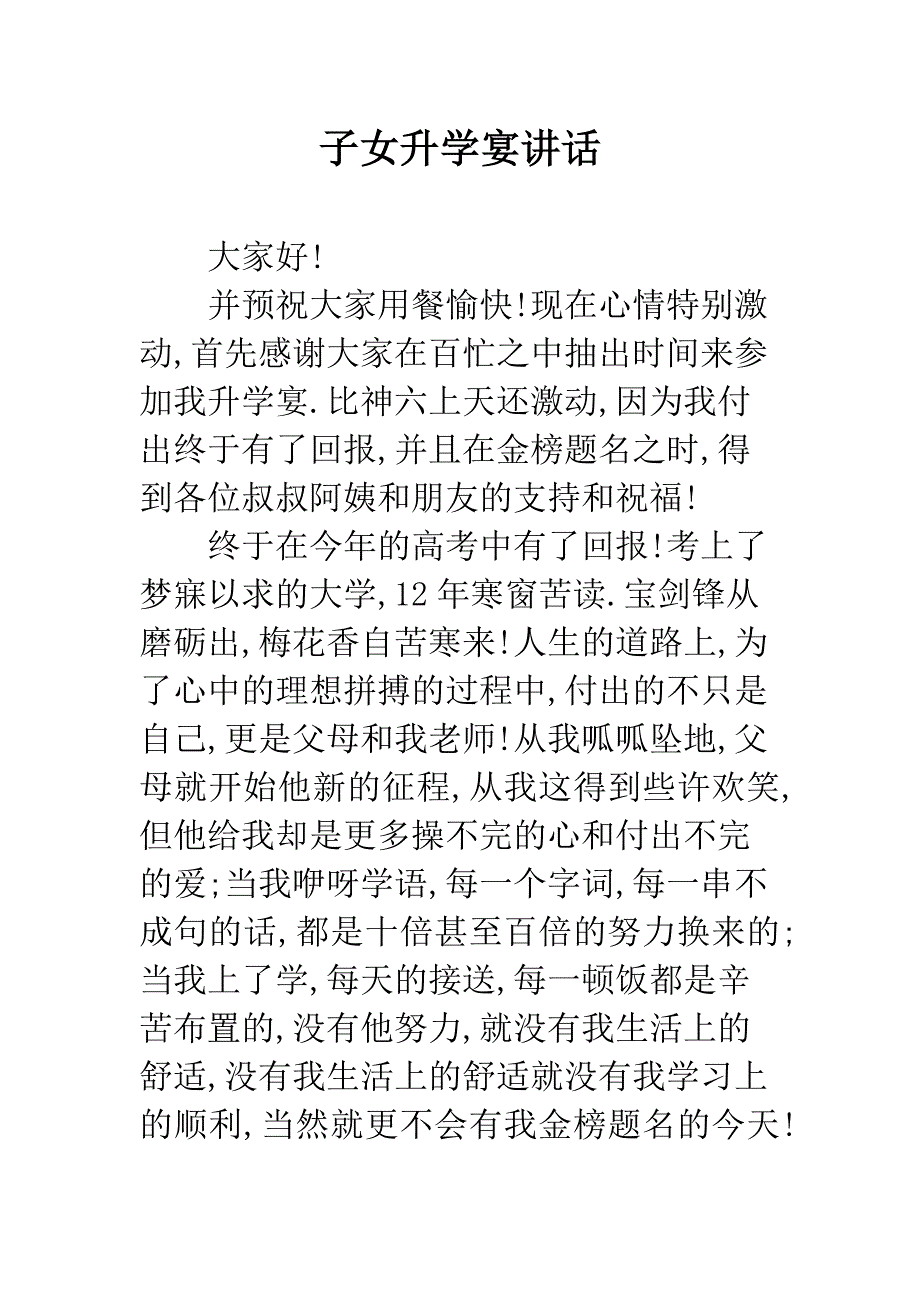 子女升学宴讲话
大家好!
并预祝大家用餐愉快!现在心情特别激
动,首先感谢大家在百忙之中抽出时间来参
加我升学宴.比神六上天还激动,因为我付
出终于有了回报,并且在金榜题名之时,得
到各位叔叔阿姨和朋友的支持和祝福!
终于在今年的高考中有了回报!考上了
梦寐以求的大学,12年寒窗苦读.宝剑锋从
磨砺出,梅花香自苦寒来!人生的道路上,为
了心中的理想拼搏的过程中,付出的不只是
自己,更是父母和我老师!从我呱呱坠地,父
母就开始他新的征程,从我这得到些许欢笑,
但他给我却是更多操不完的心和付出不完
的爱;当我咿呀学语,每一个字词,每一串不
成句的话,都是十倍甚至百倍的努力换来的;
当我上了学,每天的接送,每一顿饭都是辛
苦布置的,没有他努力,就没有我生活上的
舒适,没有我生活上的舒适就没有我学习上
的顺利,当然就更不会有我金榜题名的今天!